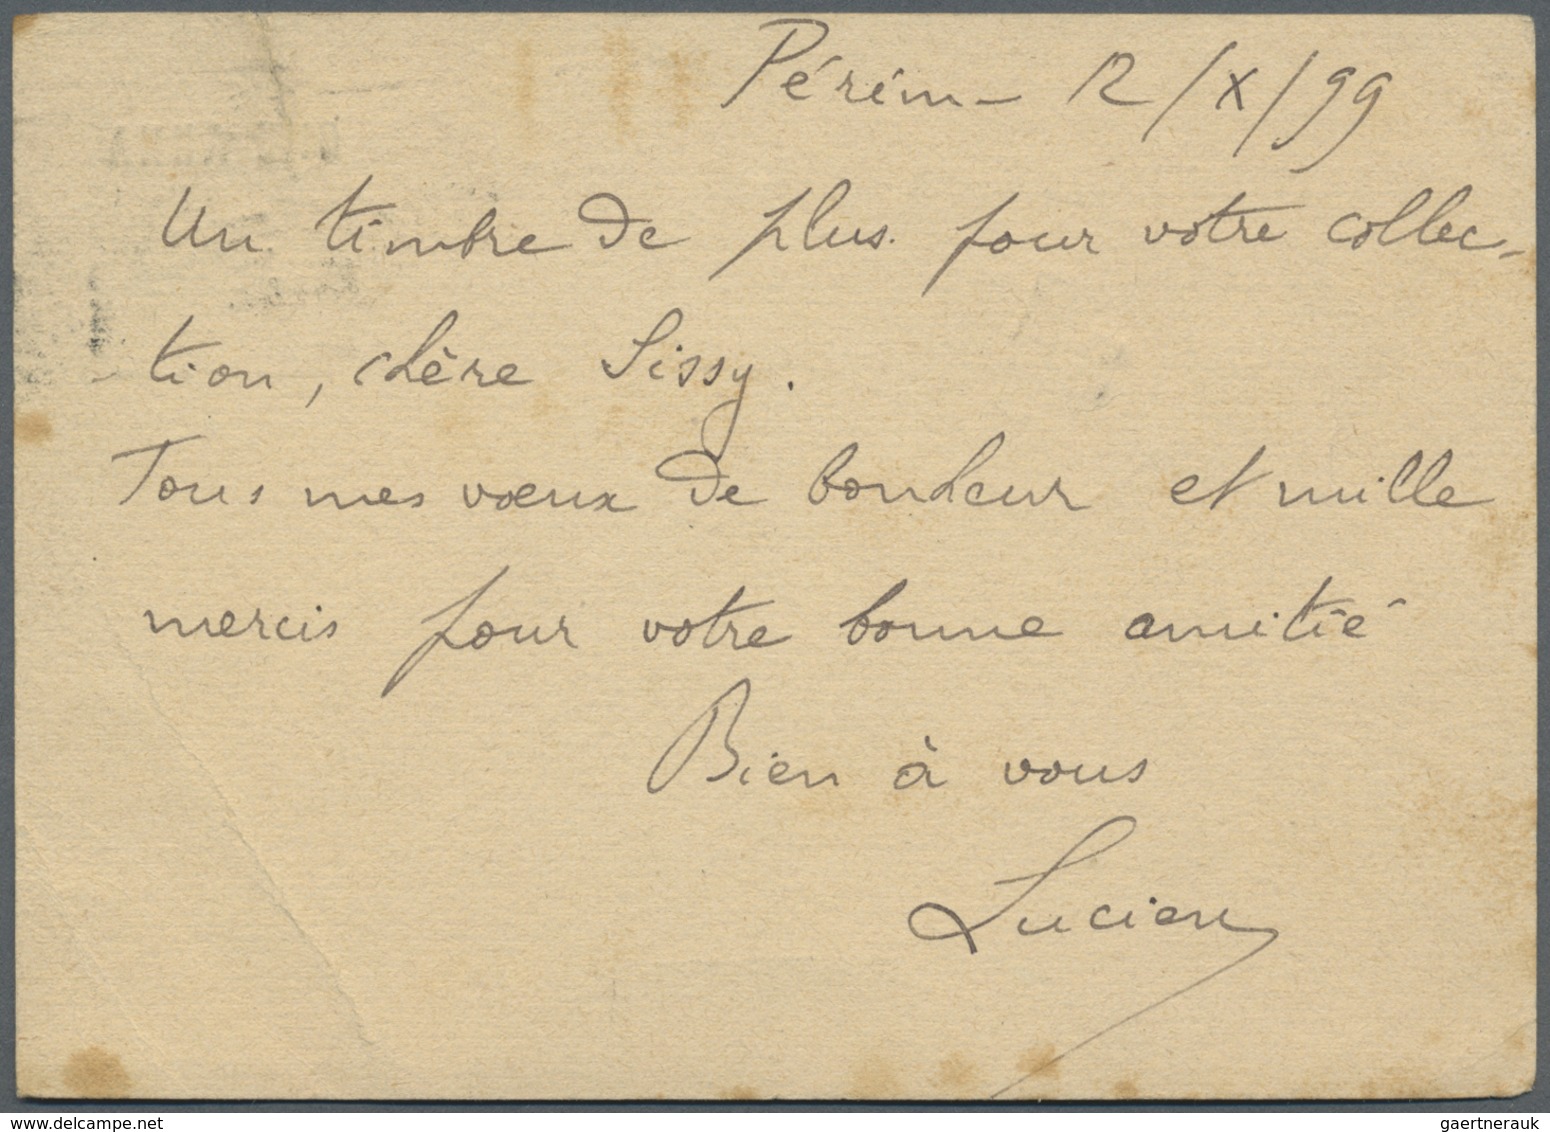 Pérím - 12/X/99
Un timbre de plus pour votre collec-
-tion, chère Sissy.
Tous mes vœux de bonheur et mille
mercis pour votre bonne amitié
Bien à vous
Lucien
delcampe.net
gaertnerauk